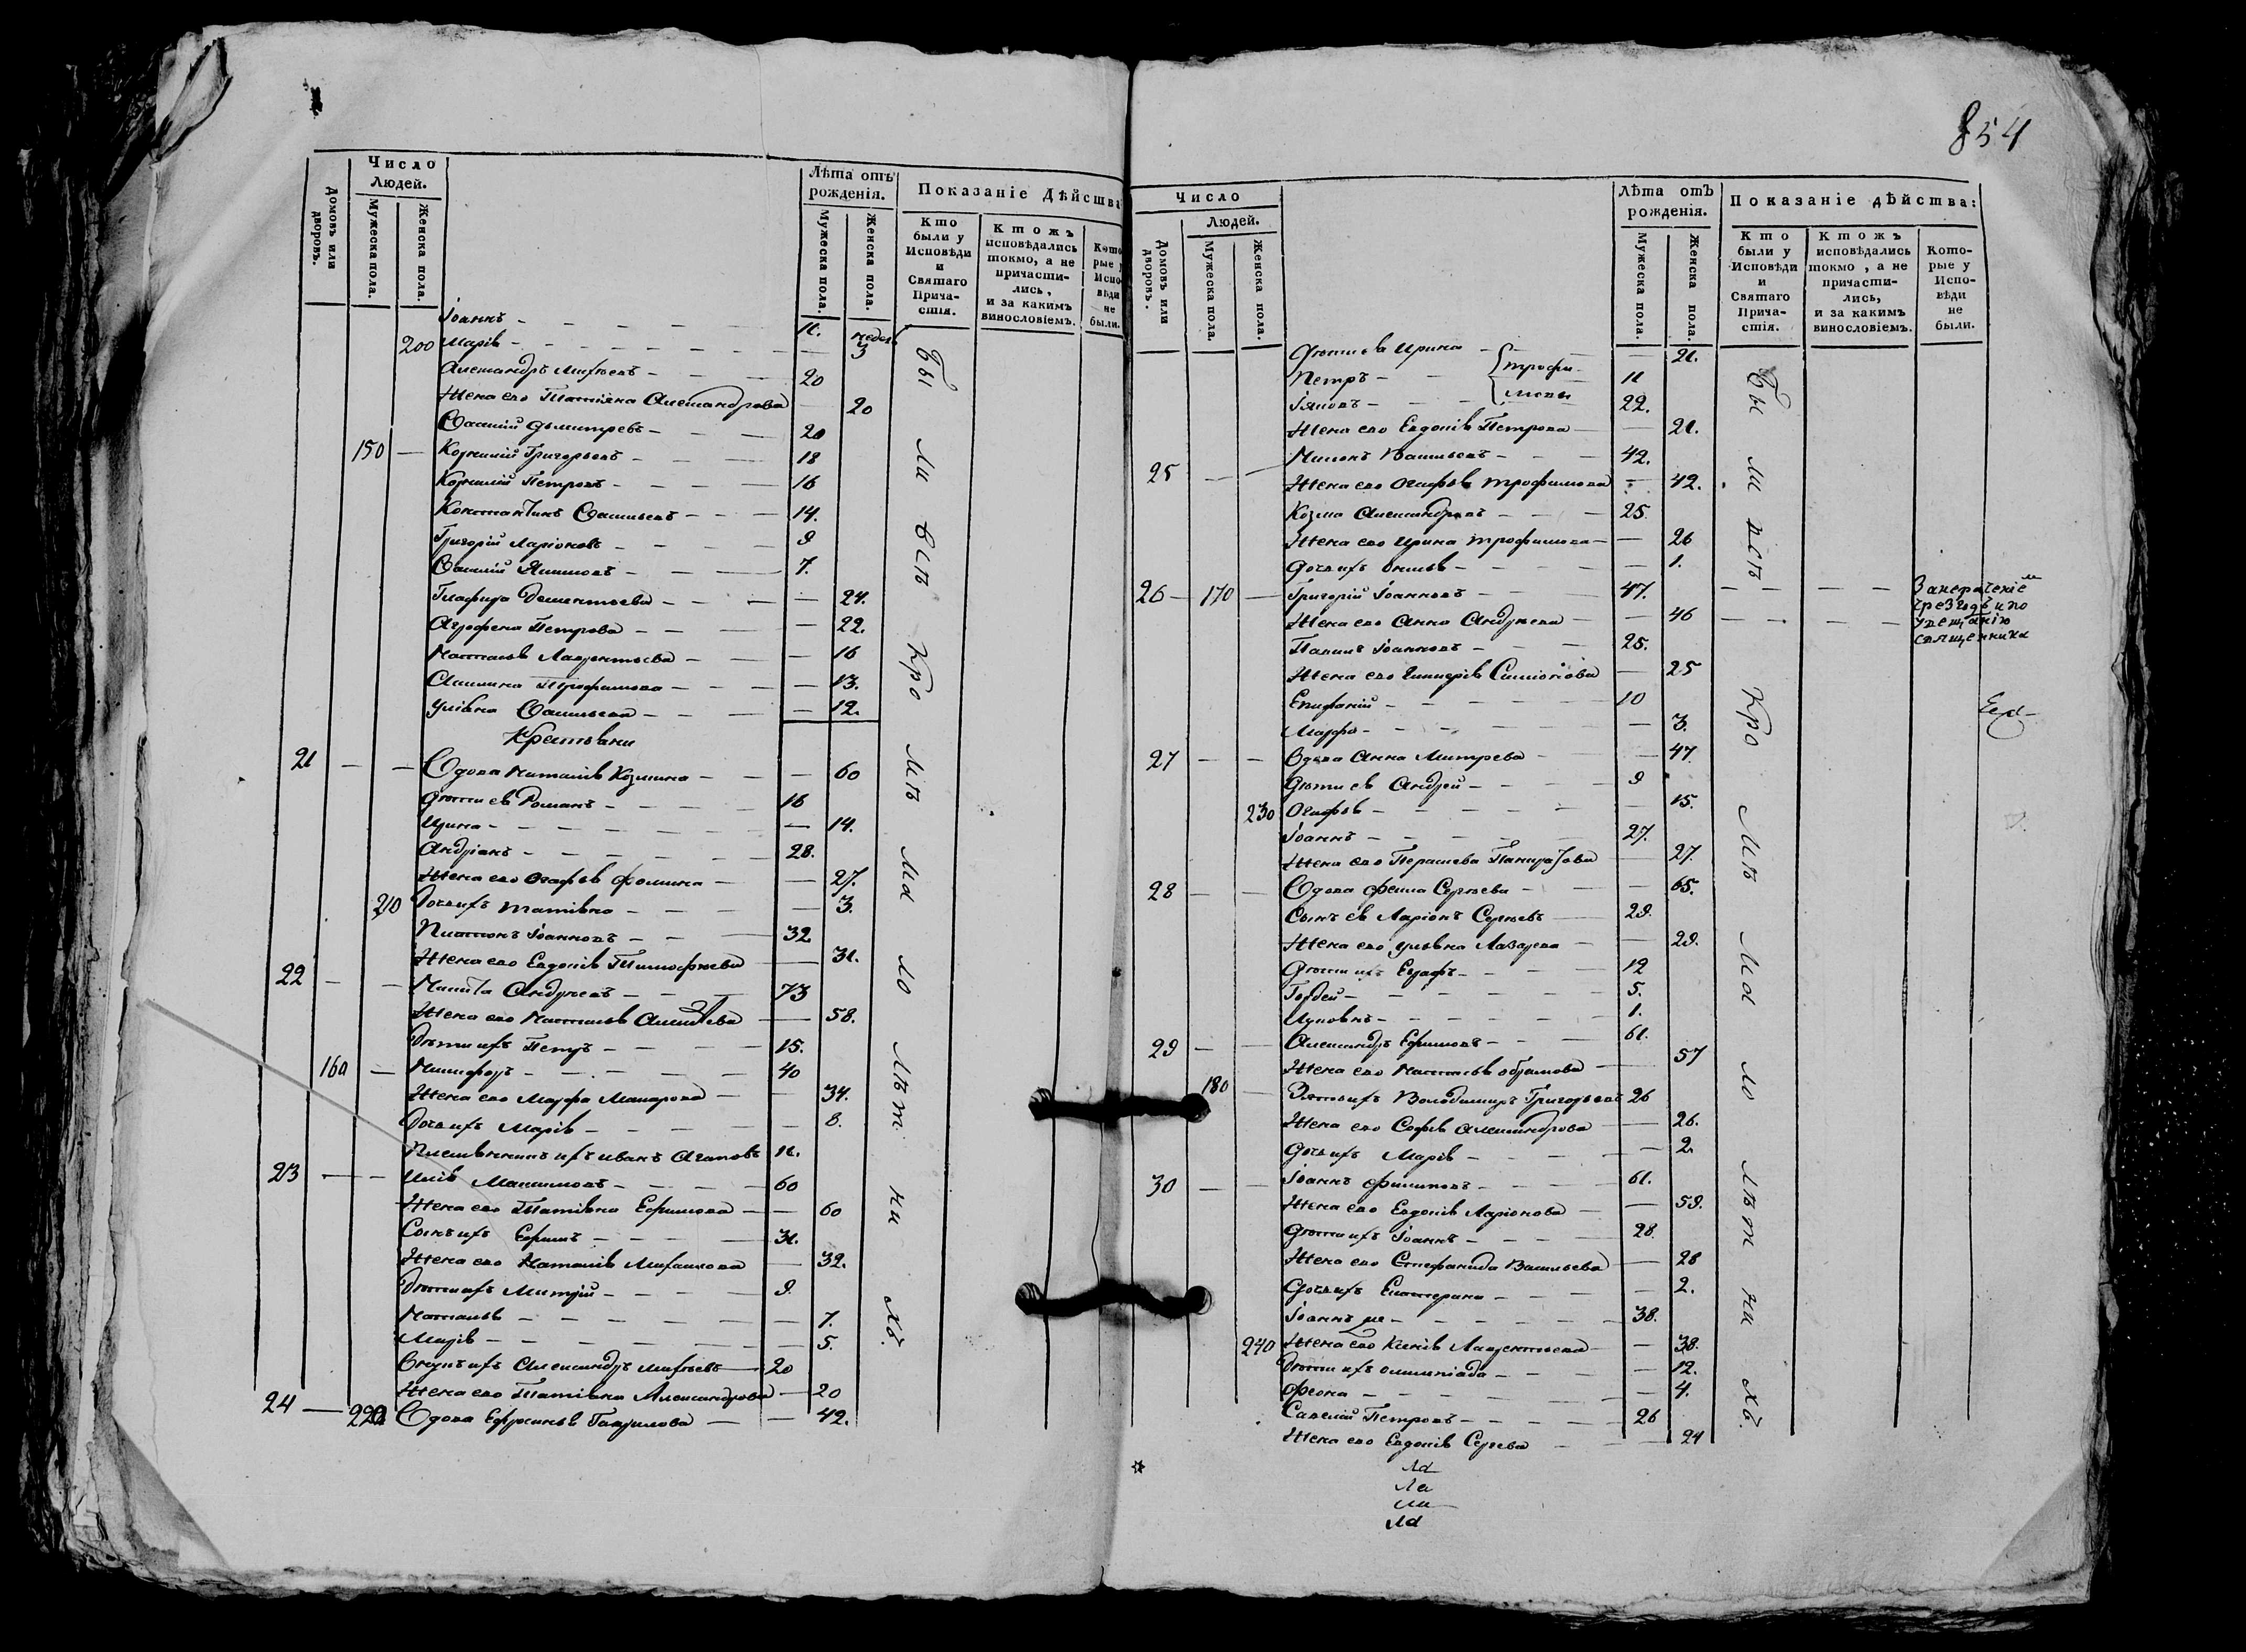 854
Число Людей.
Домовъ или дворовъ.
Мужеска пола.
Женска пола.
Лѣта отъ рожденія.
Мужеска пола.
Женска пола.
Показаніе дѣйства
Кто были у Исповѣди и Святаго Прича-стія.
Ктожъ исповѣдались токмо, а не причасти-лись, и за какимъ винословіемъ.
Кото рые у Испо-вѣди не были.
Іоаннъ 11.
200 Марія недел 3
Александръ Михѣевъ 20
Жена его Татіяна Александрова 20
Василій Дмитревъ 20
150 Корнилій Григорьевъ 18
Корнилій Петровъ 16
Константинъ Васильевъ 14.
Григорій Ларіоновъ 9
Василій 7.
Глафира Дементьева 24.
Агрофена Петрова 22.
Наталья Лаврентьева 16
Трофимова 13.
Уліяна Васильева 12.
Крестьяни
21 Вдова Наталія Козмина 60
Дѣти ея Романъ 16
Ирина 14.
Андріанъ 28.
Жена его Агафья Фомина 27.
210 Дочь ихъ Татіяна 3.
Іоанновъ 32
Жена его Евдокія Тимофѣева 31.
22 Никита Андреевъ 73
Жена его Наталья 58.
Дѣти ихъ Петръ 15.
160 Никифоръ 40
Жена его Марфа Макарова 34.
Дочь ихъ Марія 8.
Племянникъ ихъ Иванъ Агаповъ 11.
23 Илія Максимовъ 60
Жена его Татіяна Ефимова 60
Сынъ ихъ Ефимъ 31.
Жена его Наталія Михаилова 32.
Дѣти ихъ Митрій 9.
Наталья 7.
Марія 5.
Внукъ ихъ Александръ Михѣевъ 20
Жена его Татіяна Александрова 20
24 220 Вдова Ефросинья Гаврилова 42.
Бы ли всѣ Кро мѣ ма ло лѣт ни хъ.
Число Людей.
Домовъ или дворовъ.
Мужеска пола.
Женска пола.
Лѣта отъ рожденія.
Мужеска пола.
Женска пола.
Показаніе дѣйства:
Кто были у Исповѣди и Святаго Прича-стія.
Ктожъ исповѣдались токмо, а не причасти-лись, и за какимъ винословіемъ.
Кото-рые у Испо-вѣди не были.
Дѣти ея Ирина 21.
Петръ Трофи-мовы 11
Іяковъ 22.
Жена его Евдокія Петрова 21.
25 Василь­евъ 42.
Жена его Агафья Трофимова 42.
Козма Александровъ 25.
Жена его Ирина Трофимова 26
Дочь ихъ 1.
26 170 Григорій Іоанновъ 47.
Жена его Анна Андреева 46
Іоанновъ 25.
Жена его 25
Епифаній 10
Марфа 3.
27 Вдова Анна Митрева 47
Дѣти ея Андрей 9
230 Агафья 15.
Іоаннъ 27.
Жена его 27.
28 Вдова Сергѣева 65.
Сынъ ея Ларіонъ Сергѣевъ 29.
Жена его Ульяна Лазарева 29.
Дѣти ихъ 12
Гордей 5.
1.
29 Александръ Ефимовъ 61.
Жена его Наталья Обрамова 57
180 Зять ихъ Володимиръ Григорьевъ 26
Жена его Софья Александрова 26.
Дочь ихъ Марія 2.
30 Іоаннъ Филиповъ 61.
Жена его Евдокія Ларіонова 59.
Дѣти ихъ Іоаннъ 28.
Жена его Стефанида Васильева 28
Дочь ихъ Екатерина 2.
Іоаннъ же 38.
240 Жена его Ксенія Лаврентьева 38.
Дѣти ихъ Олимпіада 12.
4.
Савелій Петровъ 26
Жена его Евдокія Сергева 24
Бы ли всѣ Кро мѣ ма ло лѣт ни хъ.
священника